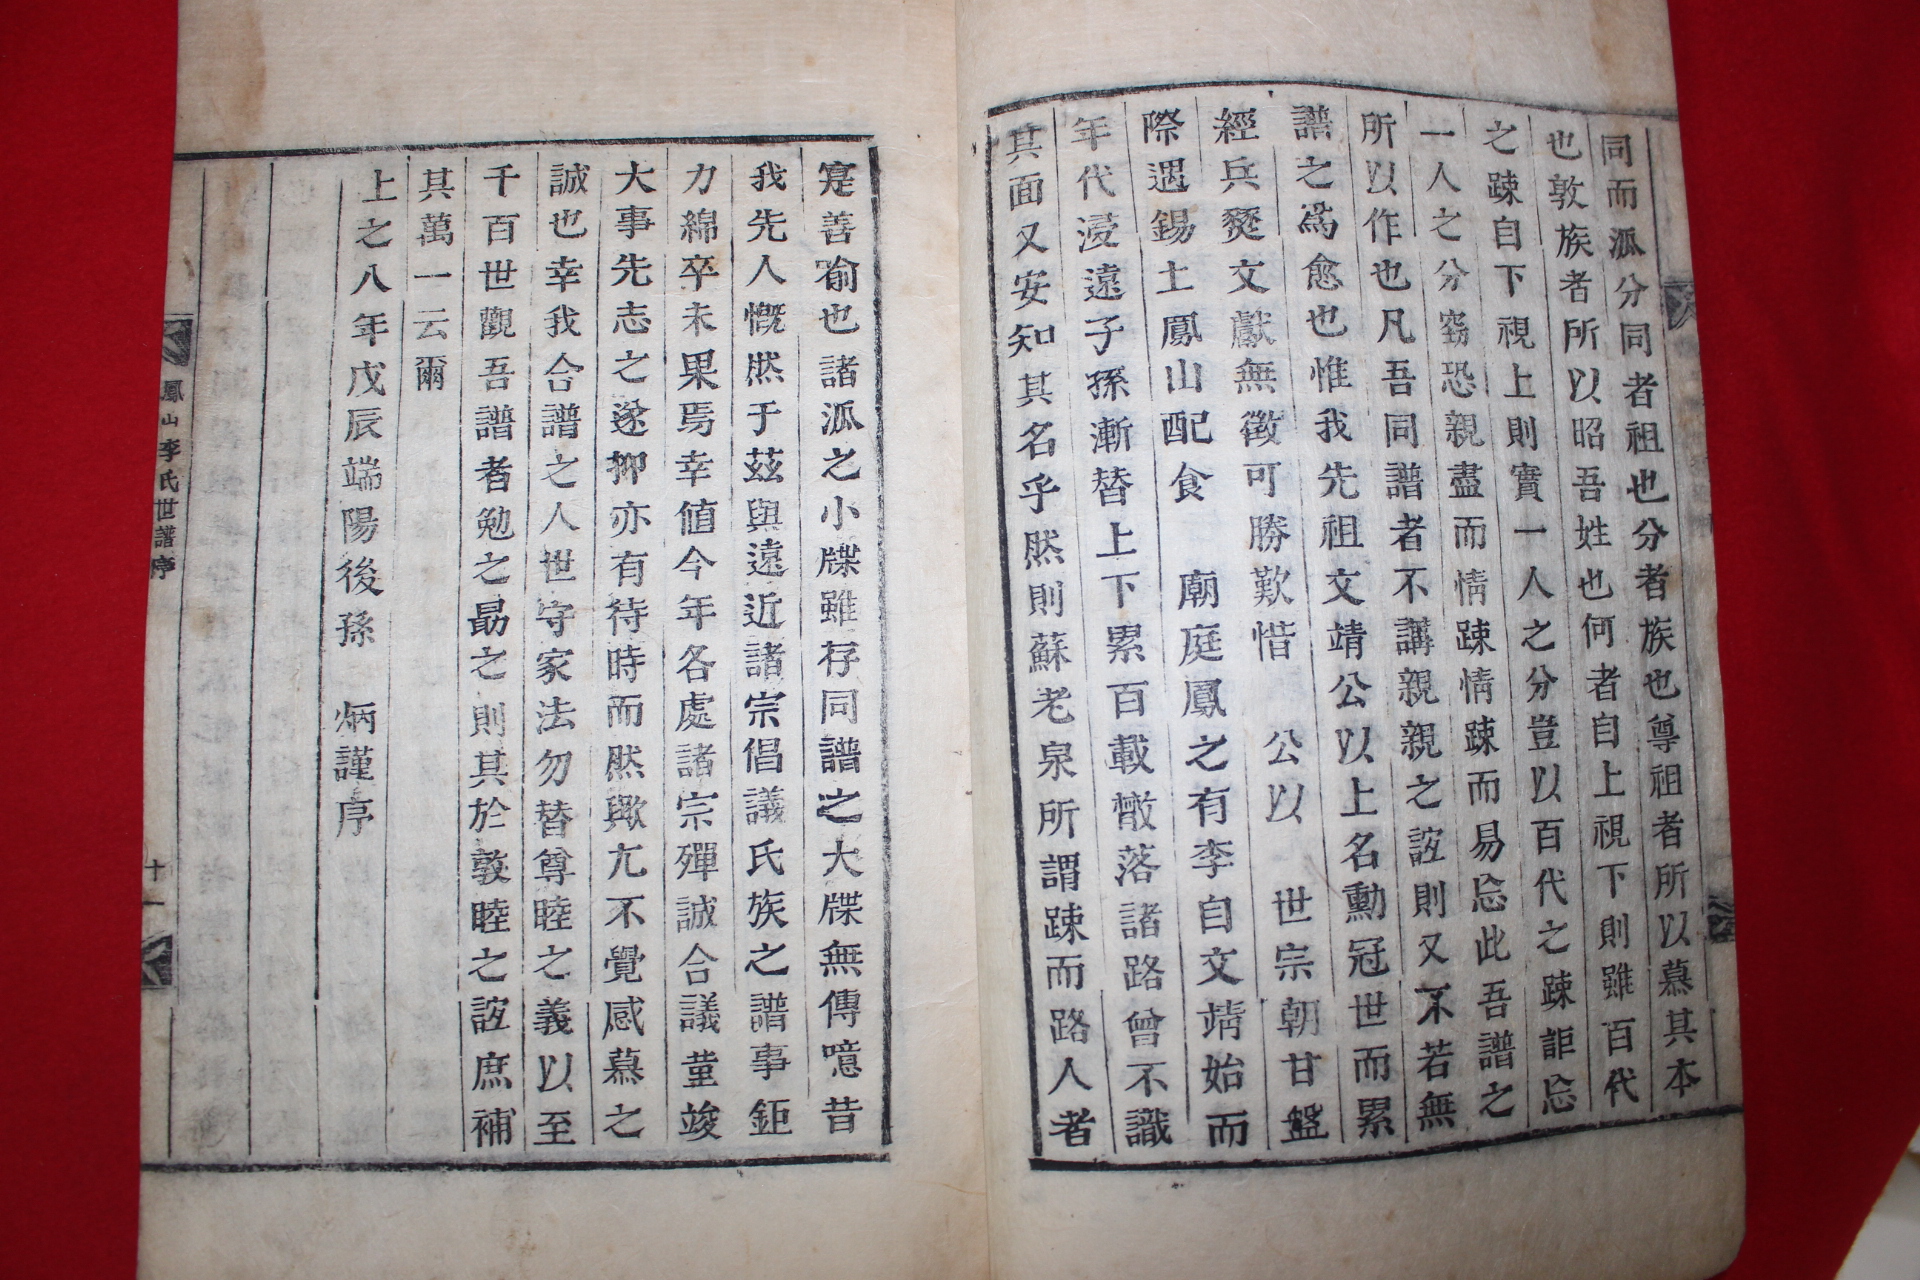 同而派分同者祖也分者族也尊祖者所以慕其本
也敦族者所以昭吾姓也何者自上視下則雖百代
之踈自下視上則實一人之分豈以百代之踈詎忘
一人之分窃恐親盡而情踈情踈而易忘此吾譜之
所以作也凡吾同譜者不講親親之誼則又不若無
譜之爲愈也惟我先祖文靖公以上名勳冠世而累
經兵燹文獻無徵可勝歎惜 公以 世宗朝甘盤
際遇錫土鳳山配食 廟庭鳳之有李自文靖始而
年代浸遠子孫漸替上下累百載散落諸路曾不識
其面又安知其名乎然則蘇老泉所謂踈而路人者
寔善喻也諸派之小牒雖存同譜之大牒無傳噫昔
我先人慨然于茲與遠近諸宗倡議氏族之譜事鉅
力綿卒未果焉幸値今年各處諸宗殫誠合議董竣
大事先志之遂抑亦有待時而然歟亢不覺感慕之
誠也幸我合譜之人世守家法勿替尊睦之義以至
千百世觀吾譜者勉之勗之則其於敦睦之誼庶補
其萬一云爾
上之八年戊辰端陽後孫 炳謹序
鳳山李氏世譜序
十一